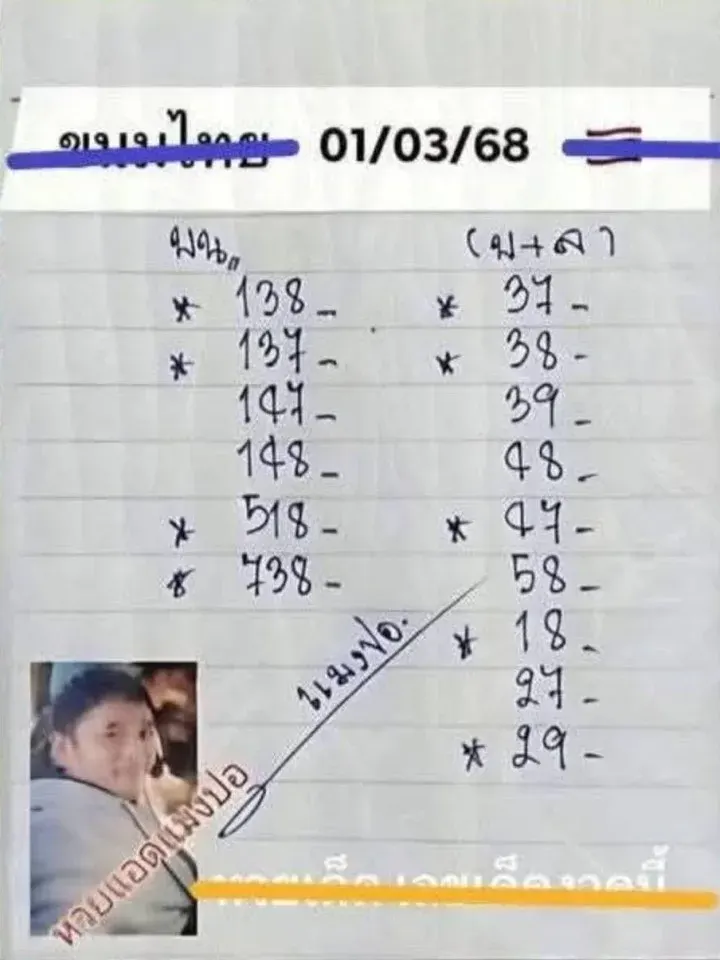 ขนมไทย 01/03/68
บน,, (บ+ล)
* 138- * 37-
* 137- * 38-
147- 39-
148- 48-
* 518- * 47-
* 738- 58-
* 18-
27-
* 29-
แมงปอ.
หวยแอดแมงปอ